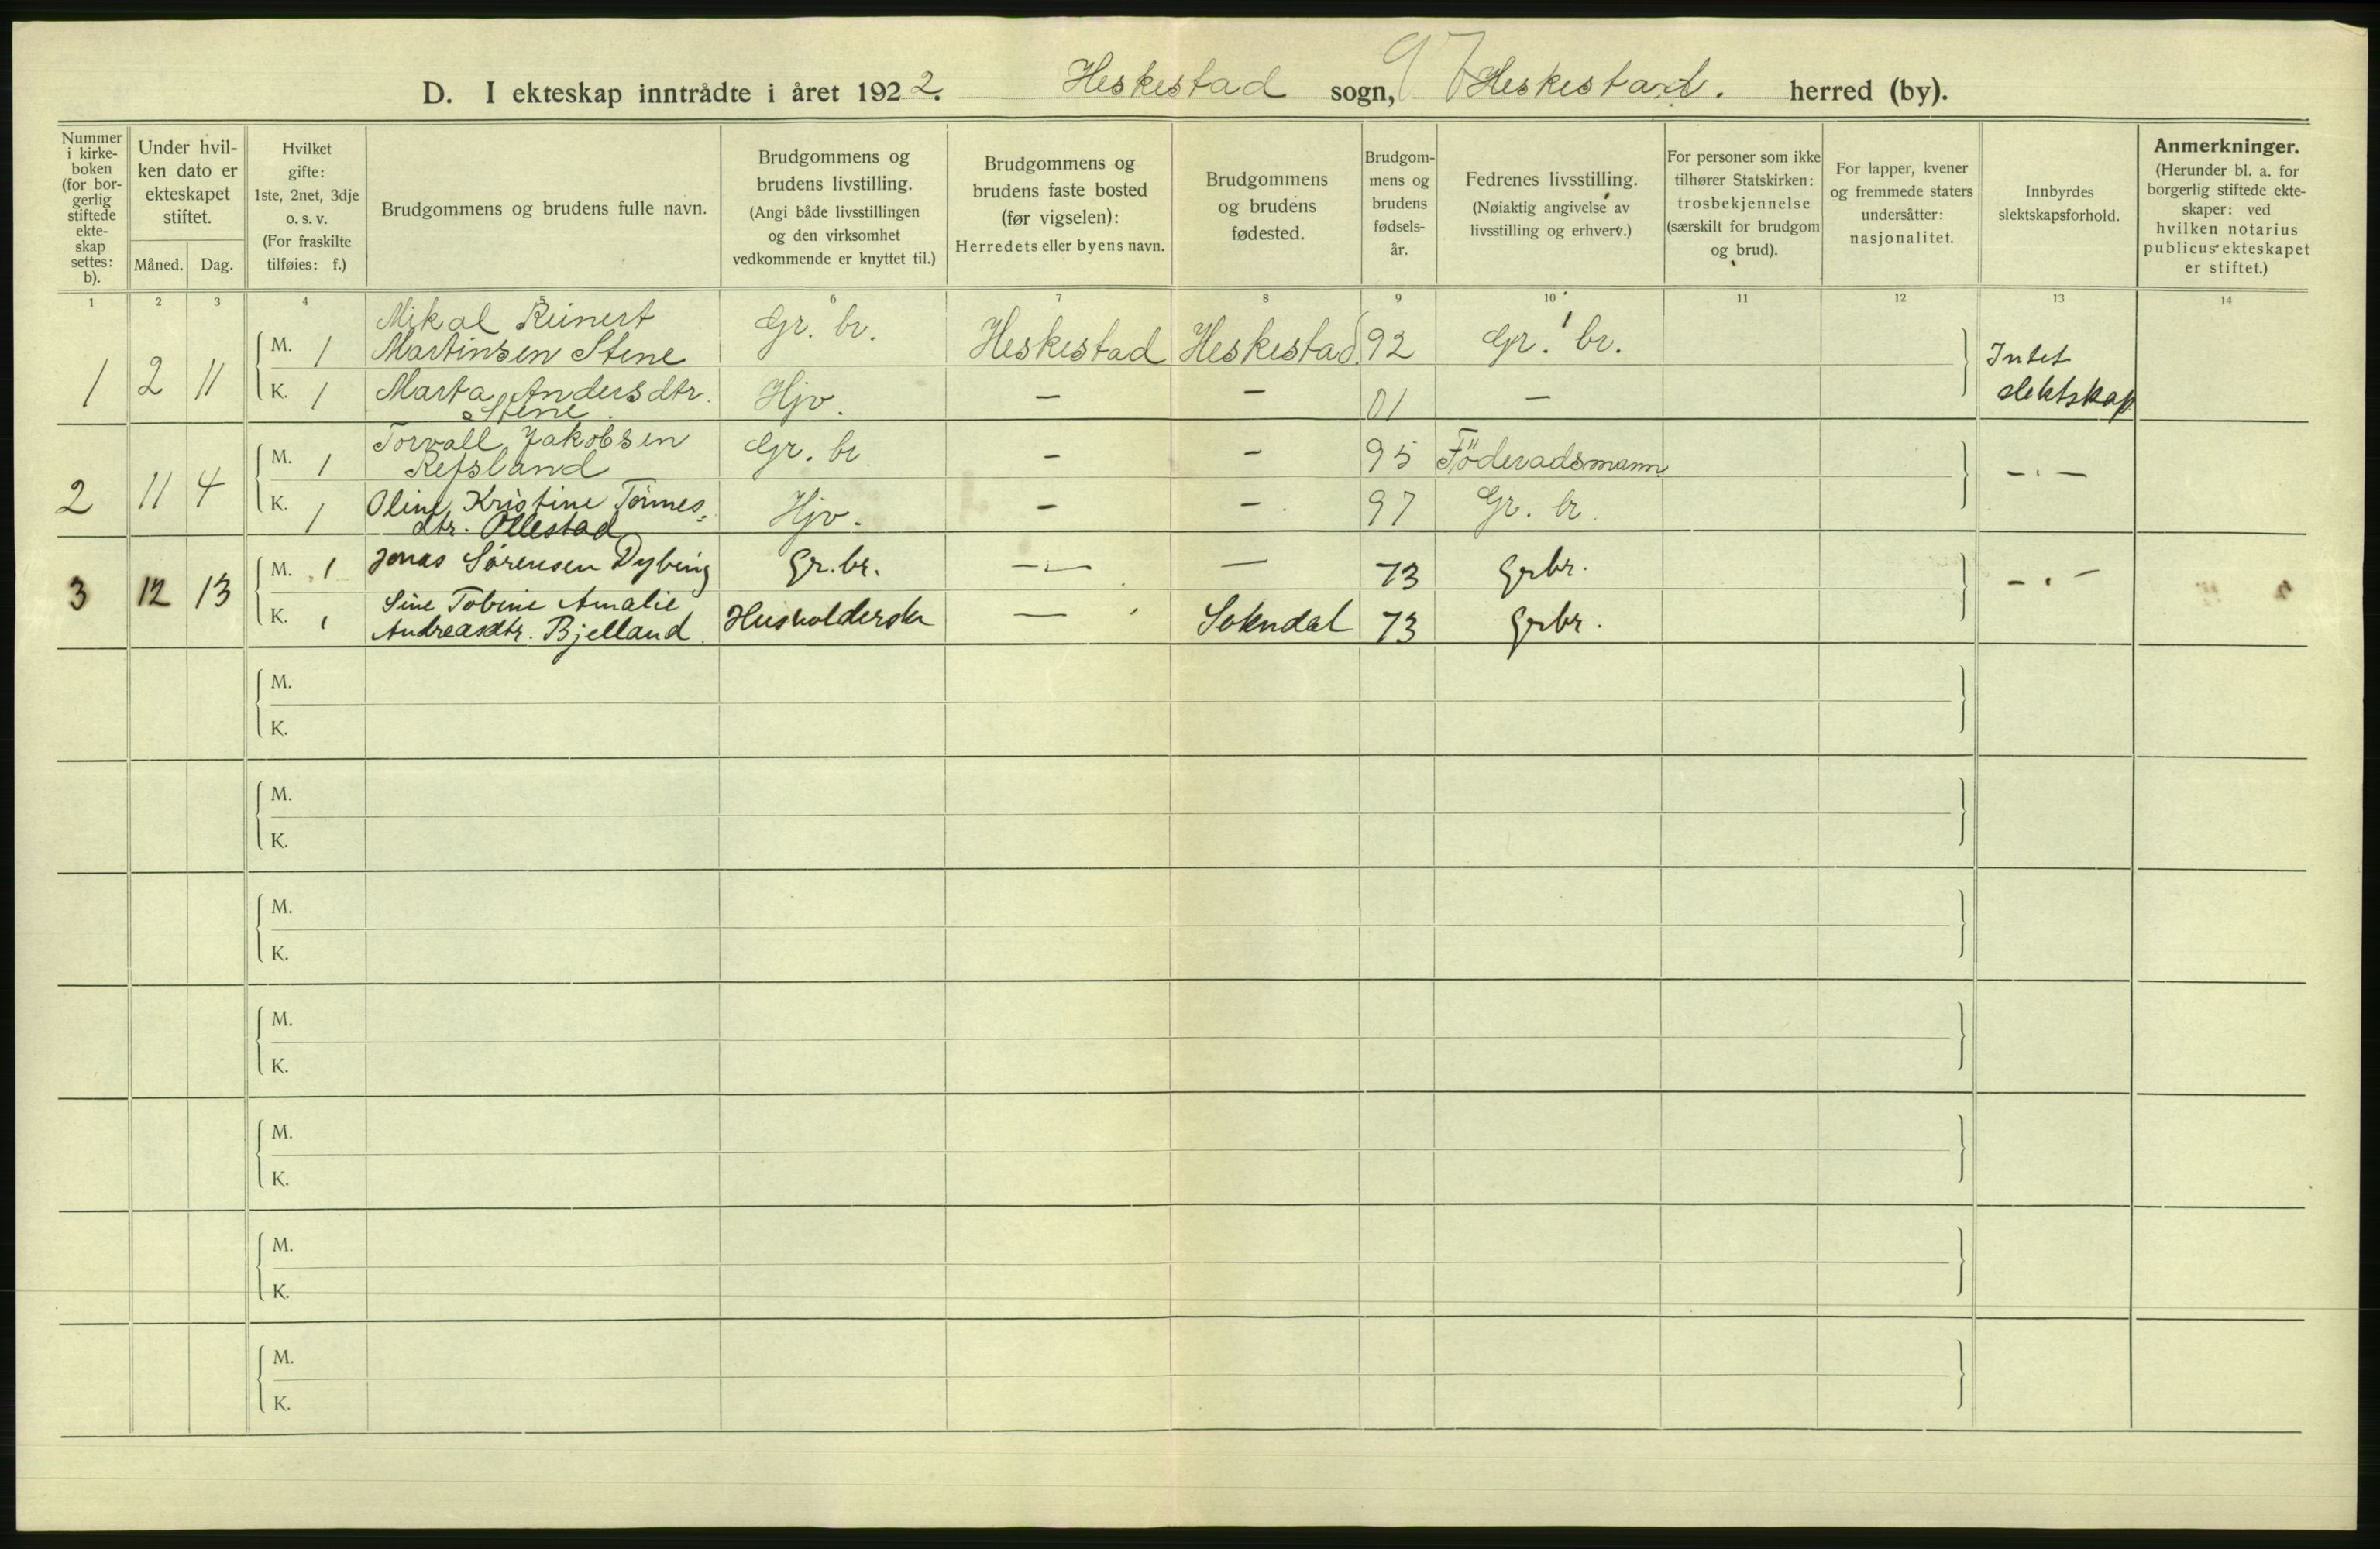 D. I ekteskap inntrådte i året 1922. Heskestad sogn, 97 Heskestad. herred (by).
Nummer i kirke- boken (for bor- gerlig stiftede ekte- skap settes: b).
Under hvil- ken dato er ekteskapet stiftet.
Måned. Dag.
Hvilket gifte: 1ste, 2net, 3dje o. s. v. (For fraskilte tilføies: f.)
Brudgommens og brudens fulle navn.
Brudgommens og brudens livstilling. (Angi både livsstillingen og den virksomhet vedkommende er knyttet til.)
Brudgommens og brudens faste bosted (før vigselen): Herredets eller byens navn.
Brudgommens og brudens fødested.
Brudgom- mens og brudens fødsels- år.
Fedrenes livsstilling. (Nøiaktig angivelse av livsstilling og erhverv.)
For personer som ikke tilhører Statskirken: trosbekjennelse (særskilt for brudgom og brud).
For lapper, kvener og fremmede staters undersåtter: nasjonalitet.
Innbyrdes slektskapsforhold.
Anmerkninger. (Herunder bl. a. for borgerlig stiftede ekte- skaper: ved hvilken notarius publicus ekteskapet er stiftet.)
1 2 3 4 5 6 7 8 9 10 11 12 13 14
1 2 11 M. 1 Mikal Reinert
Martinsen Stene Gr. br. Heskestad Heskestad 92 Gr. br. Intet
slektskap
K. 1 Marta Andersdtr.
Stene. Hjv. — — 01 —
2 11 4 M. 1 Torvall Jakobsen
Refsland Gr. br. — — 95 Föderadsmann — . —
K. 1 Oline Kristine Tönnes-
dtr. Ollestad Hjv. — — 97 Gr. br.
3 12 13 M. 1 Jonas Sørensen Dybing Gr. br. — — — 73 Grbr. — . —
K. 1 Sine Tobine Amalie
Andreasdtr. Bjelland. Husholderske — Sokndal 73 Grbr.
M.
K.
M.
K.
M.
K.
M.
K.
M.
K.
M.
K.
M.
K.